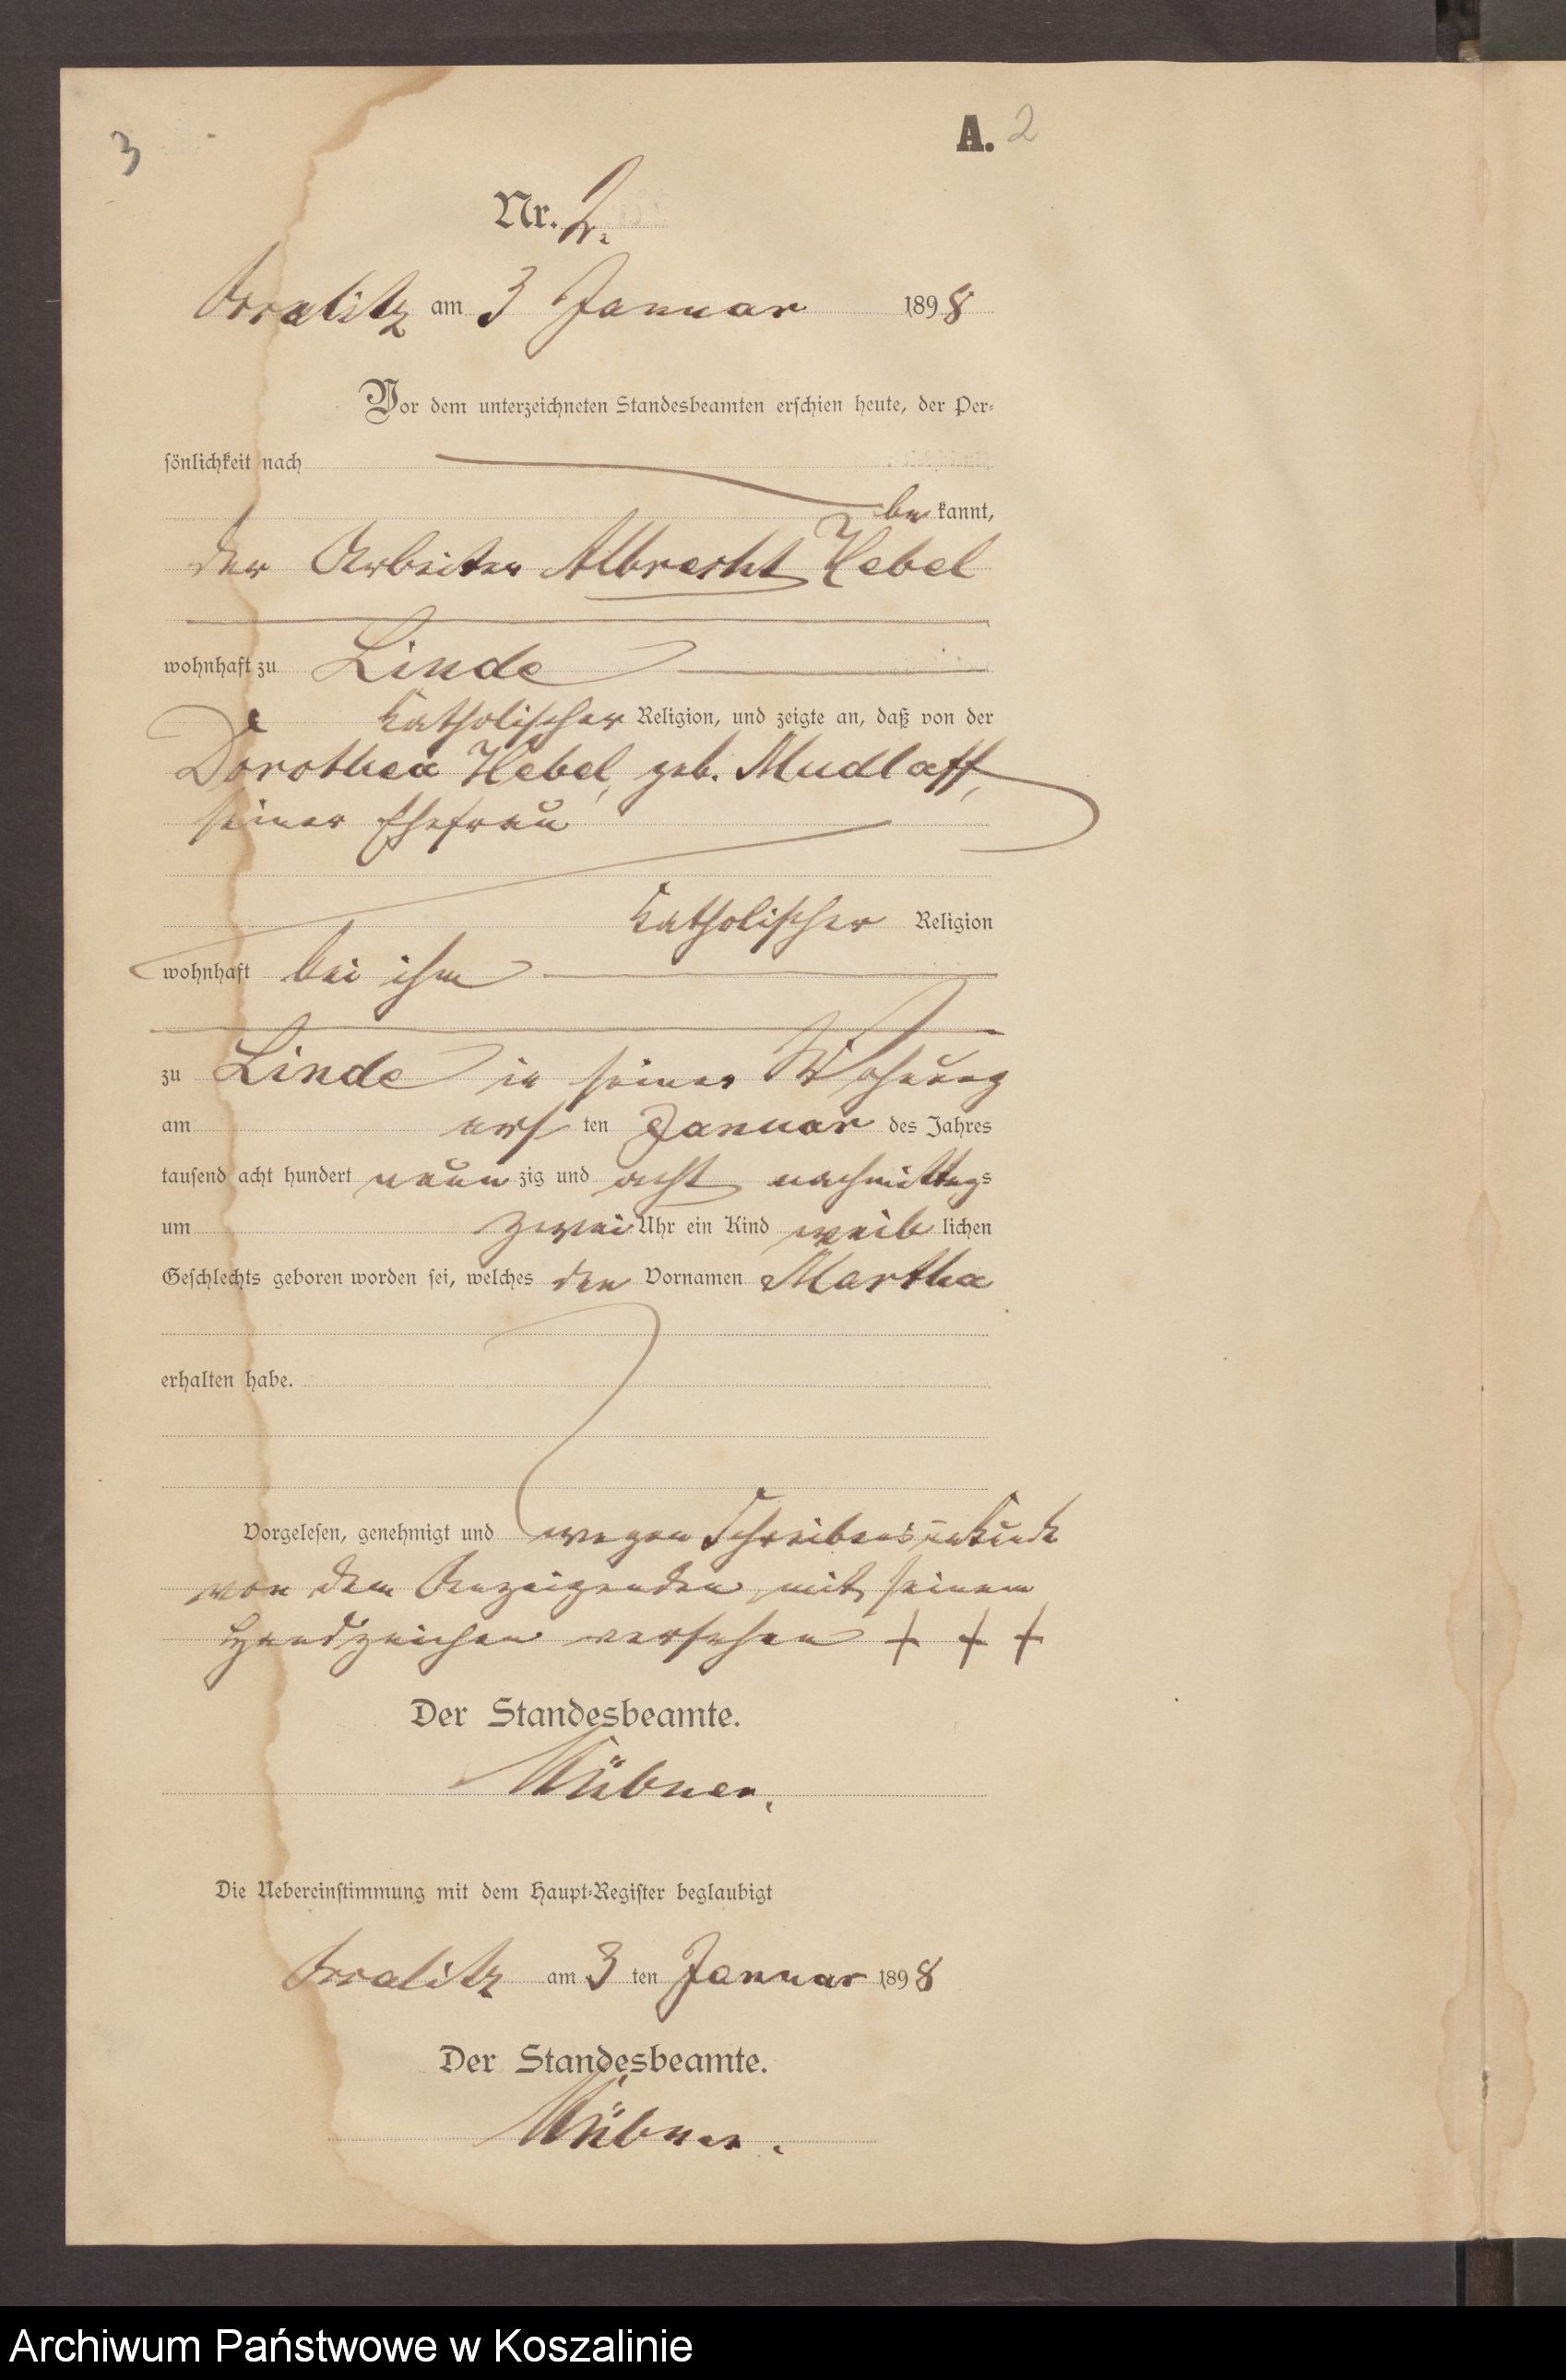 3
A. 2
Nr. 2.
am 3 Januar 1898
Vor dem unterzeichneten Standesbeamten erschien heute, der Per-
sönlichkeit nach
be kannt,
der Arbeiter Albrecht Hebel
wohnhaft zu Linde
katholischer Religion, und zeigte an, daß von der
Dorothea Hebel, geb. Mudlaff,
seiner Ehefrau
katholischer Religion
wohnhaft bei ihm
zu Linde in seiner Wohnung
am ersten Januar des Jahres
tausend acht hundert neun zig und acht nachmittags
um zwei Uhr ein Kind weib lichen
Geschlechts geboren worden sei, welches den Vornamen Martha
erhalten habe.
Vorgelesen, genehmigt und wegen Schreibensunkunde
von dem Anzeigenden mit seinem
Handzeichen versehen + + +
Der Standesbeamte.
Die Uebereinstimmung mit dem Haupt-Register beglaubigt
am 3 ten Januar 1898
Der Standesbeamte.
Archiwum Państwowe w Koszalinie